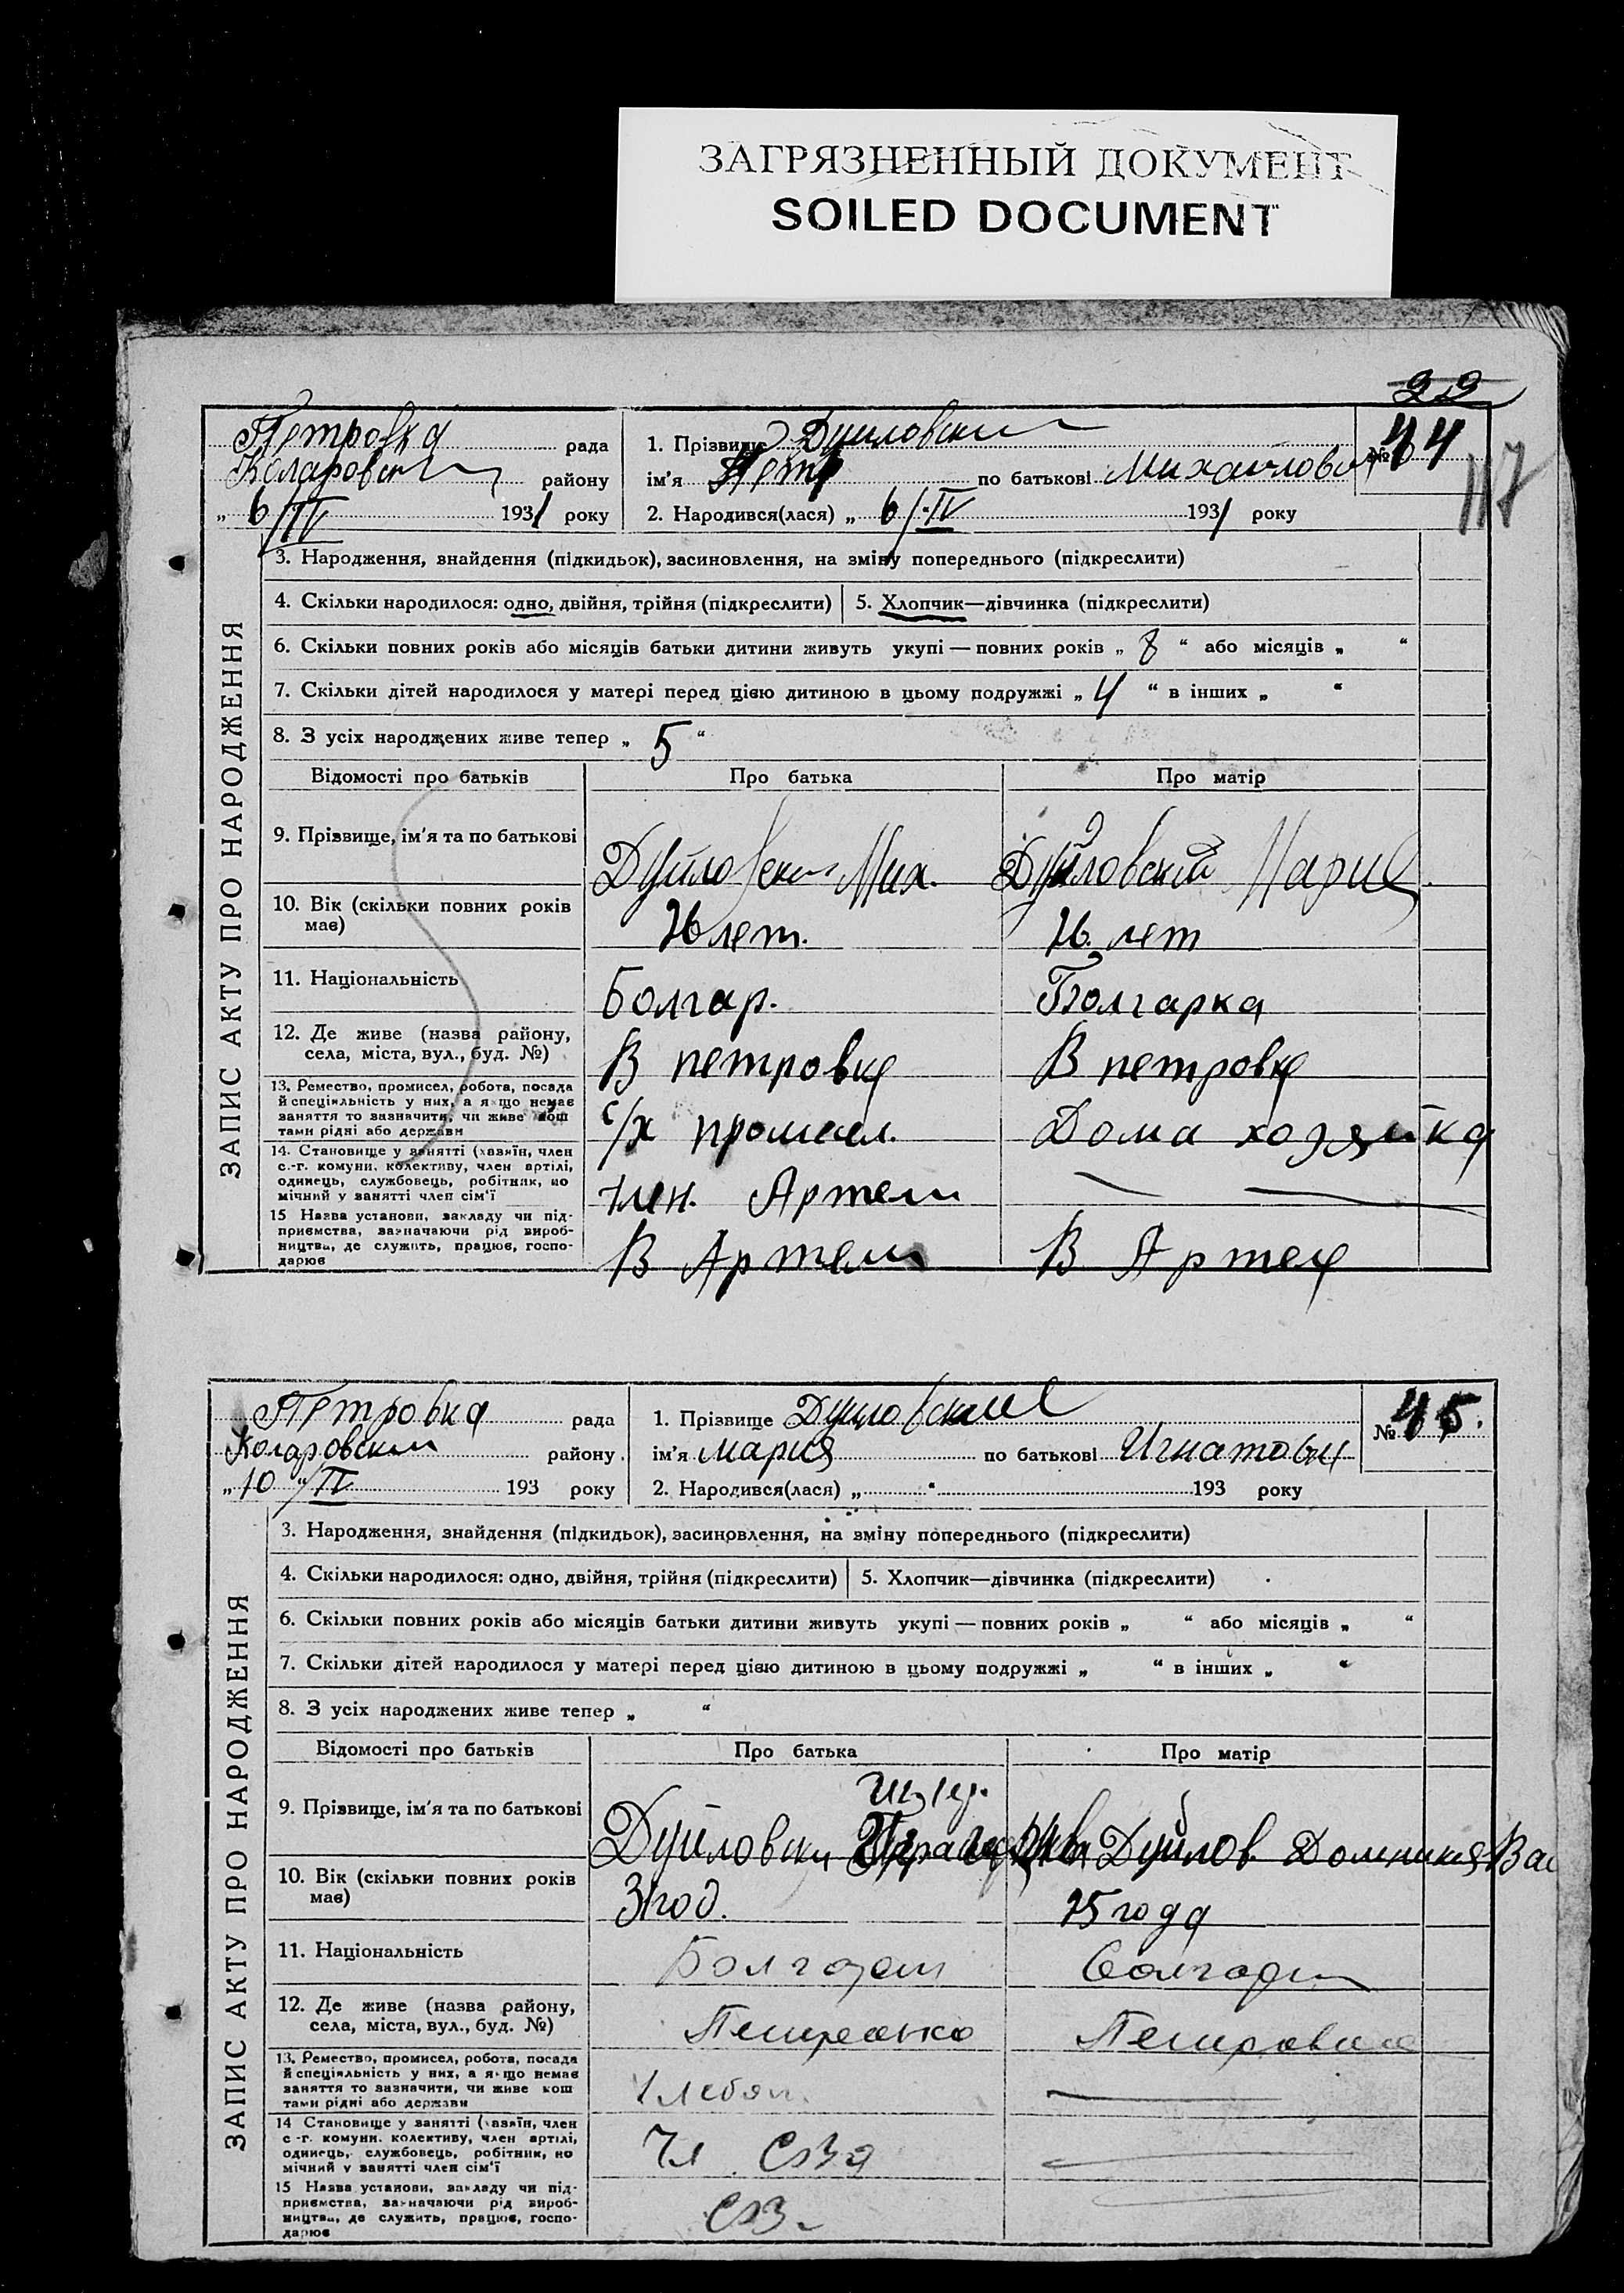 ЗАГРЯЗНЕННЫЙ ДОКУМЕНТ
SOILED DOCUMENT
22
Петровка рада
района району
„ 6/IV 1931 року
1. Прізвище Дуйловский
ім'я Петр по батькові Михайлович
2. Народився(лася) „ 6/IV 1931 року
№ 44
117
ЗАПИС АКТУ ПРО НАРОДЖЕННЯ
3. Народження, знайдення (підкидьок), засиновлення, на зміну попереднього (підкреслити)
4. Скільки народилося: одно, двійня, трійня (підкреслити) 5. Хлопчик—дівчинка (підкреслити)
6. Скільки повних років або місяців батьки дитини живуть укупі — повних років „ 8 “ або місяців „ “
7. Скільки дітей народилося у матері перед цією дитиною в цьому подружжі „ 4 “ в інших „ “
8. З усіх народжених живе тепер „ 5 “
Відомості про батьків Про батька Про матір
9. Прізвище, ім'я та по батькові Дуйловский Мих. Дуйловский Мария
10. Вік (скільки повних років має) 26 лет. 26 лет
11. Національність Болгар. Болгарка
12. Де живе (назва району, села, міста, вул., буд. №) В петровке В петровке
13. Ремество, промисел, робота, посада й спеціяльність у них, а якщо немає заняття то зазначити, чи живе кош тами рідні або держави с/х промысл. Дома хозяйка
14. Становище у занятті (хазяїн, член с.-г. комуни, колективу, член артілі, одинець, службовець, робітник, по мічний у занятті член сім'ї член. Артели
15 Назва установи, закладу чи під- приємства, зазначаючи рід вироб- ництва, де служить, працює, госпо- дарює В Артели В Артеле
Петровка рада
Коларовский району
„ 10 “/IV 193 року
1. Прізвище Дуйловский
ім'я Мария по батькові Игнатовн
2. Народився(лася) „ “ 193 року
№ 45.
ЗАПИС АКТУ ПРО НАРОДЖЕННЯ
3. Народження, знайдення (підкидьок), засиновлення, на зміну попереднього (підкреслити)
4. Скільки народилося: одно, двійня, трійня (підкреслити) 5. Хлопчик—дівчинка (підкреслити)
6. Скільки повних років або місяців батьки дитини живуть укупі — повних років „ “ або місяців „ “
7. Скільки дітей народилося у матері перед цією дитиною в цьому подружжі „ “ в інших „ “
8. З усіх народжених живе тепер „ “
Відомості про батьків Про батька Про матір
9. Прізвище, ім'я та по батькові Дуйловски Дуйлов Домникия Вас
10. Вік (скільки повних років має) 31 год. 25 года
11. Національність Болгарин болгарин
12. Де живе (назва району, села, міста, вул., буд. №) Петровка Петровка
13. Ремество, промисел, робота, посада й спеціяльність у них, а якщо немає заняття то зазначити, чи живе кош тами рідні або держави
14 Становище у занятті (хазяїн, член с -г. комуни, колективу, член артілі, одинець, службовець, робітник, по мічний у занятті член сім'ї Чл СОЗа
15 Назва установи, закладу чи під- приємства, зазначаючи рід вироб- ництва, де служить, працює, госпо- дарює СОЗ